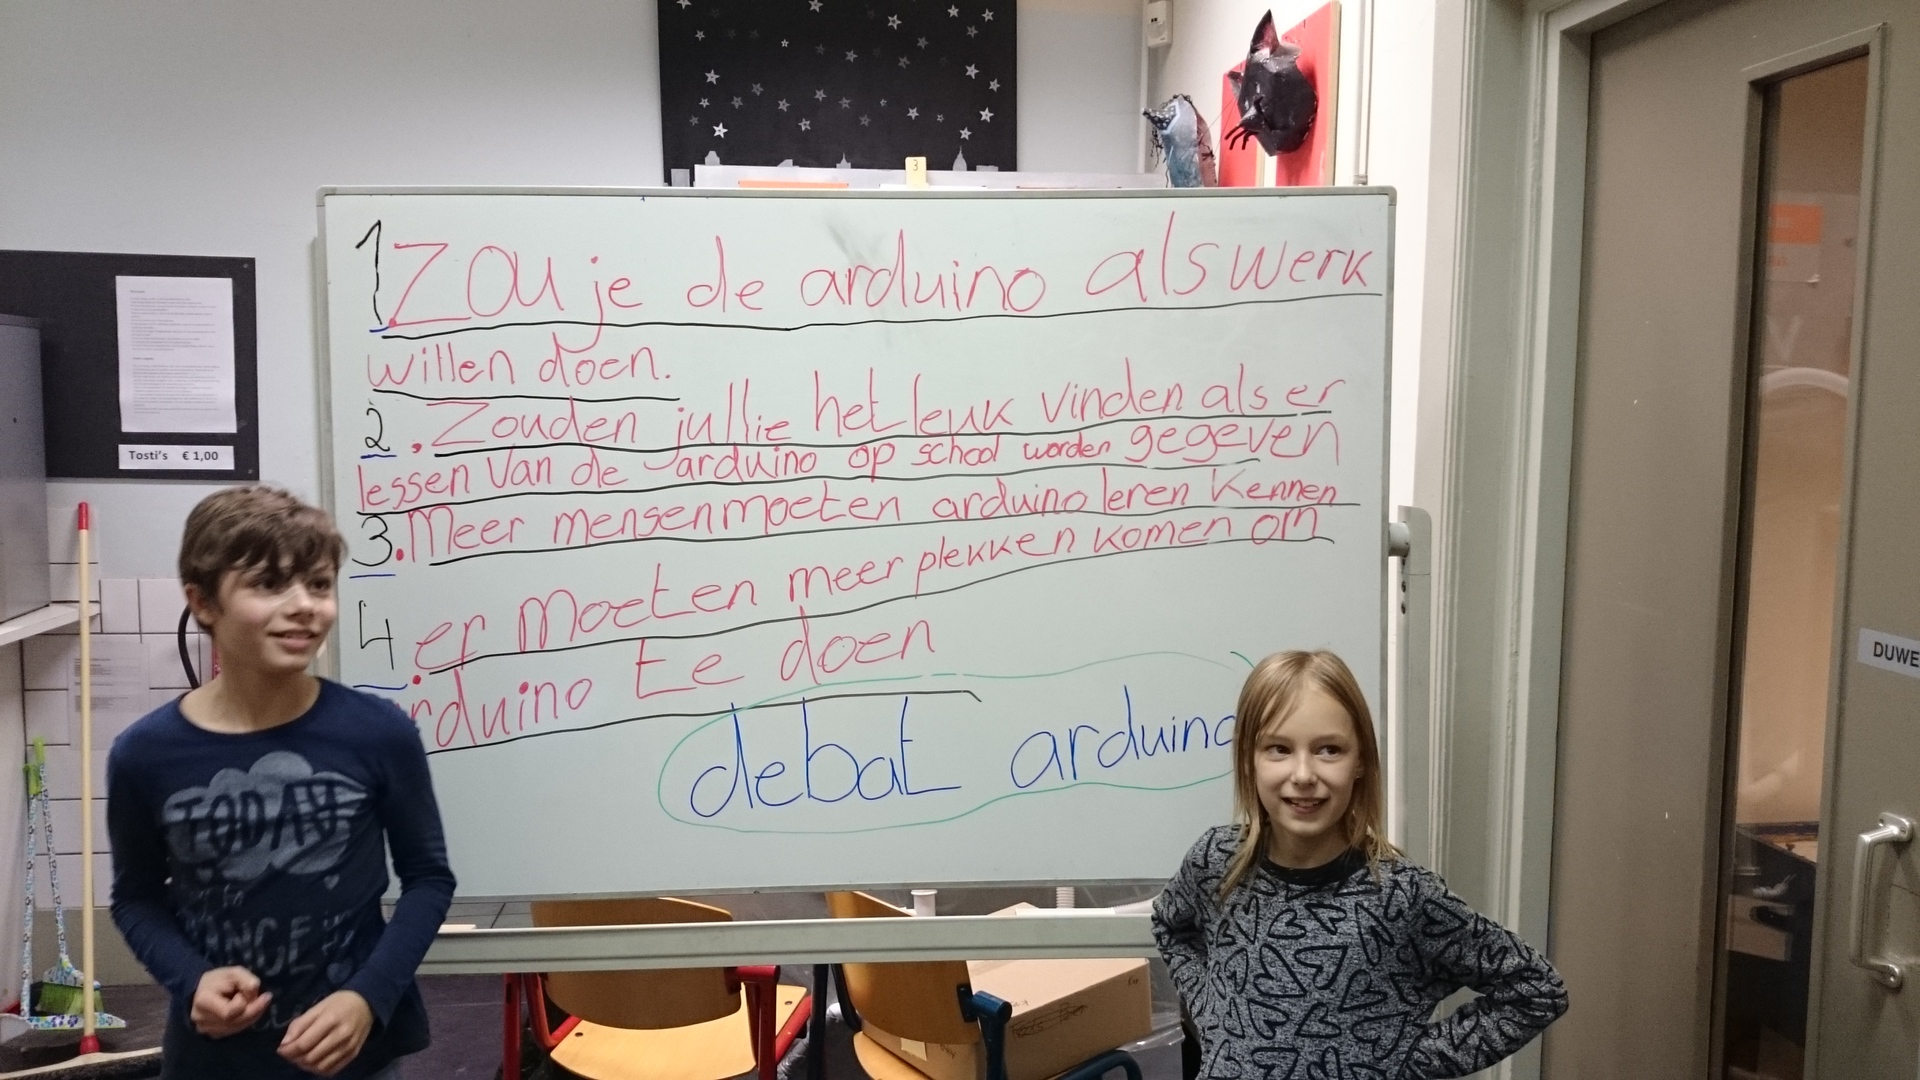 3
1. Zou je de arduino als werk
willen doen.
2. Zouden jullie het leuk vinden als er
lessen van de arduino op school worden gegeven
3. Meer mensen moeten arduino leren kennen
4. er moeten meer plekken komen om
arduino te doen
debat arduino
Tosti's € 1,00
TODAY
DUWE